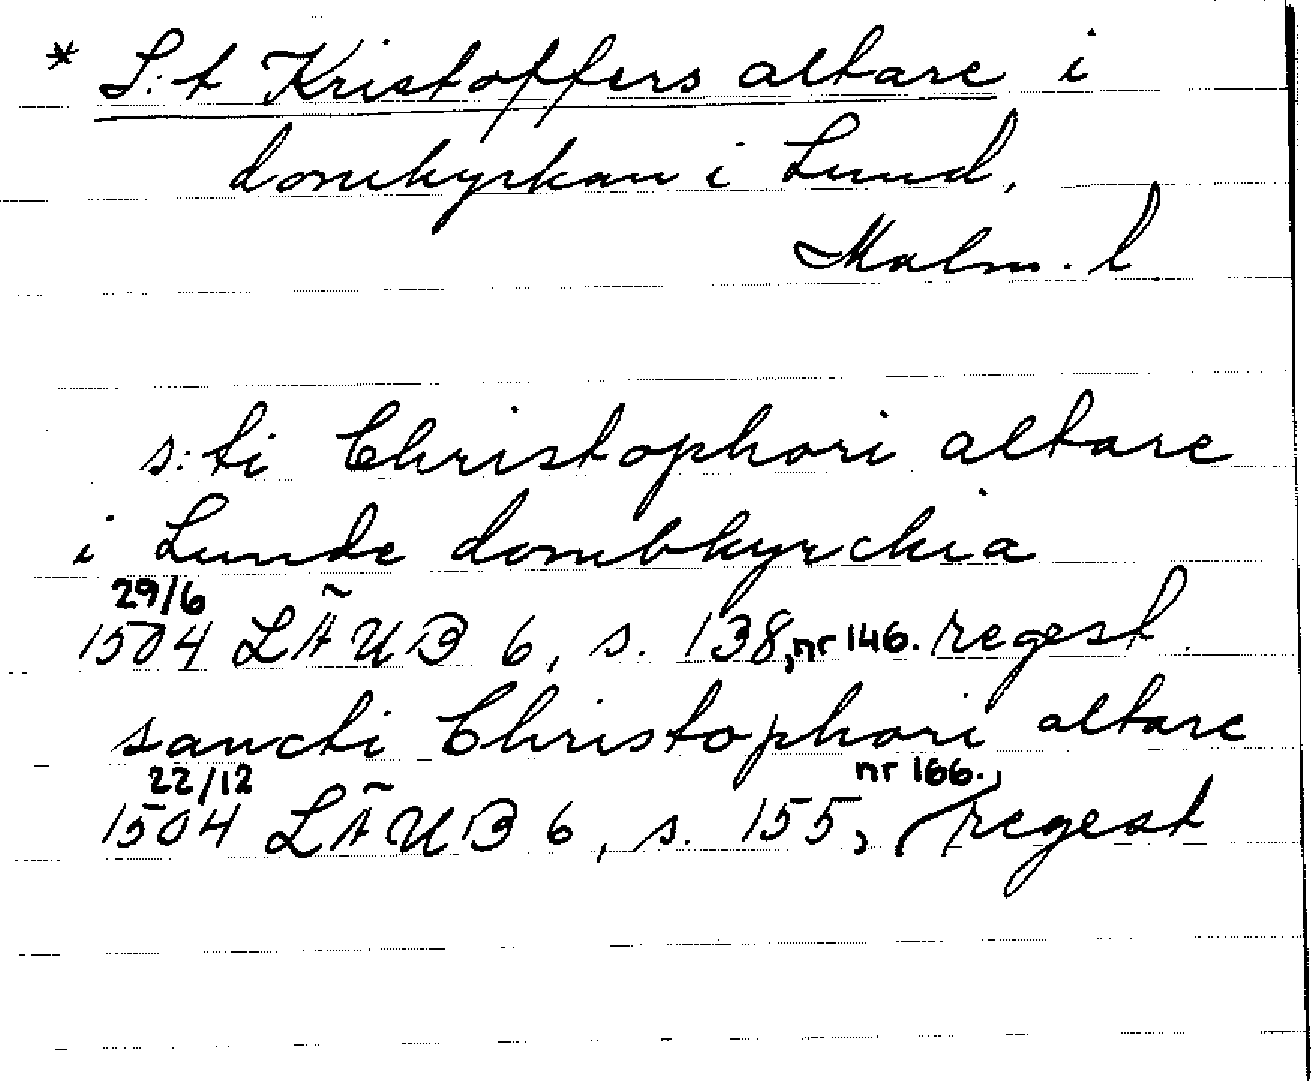 * S:t Kristoffers altare i
domkyrkan i Lund,
Malm. l.
s:ti Christophori altare
i Lunde dombkyrchia
29/6
1504 LÄUB 6, s. 138, nr 146. regest.
sancti Christophori altare
22/12 nr 166.,
1504 LÄUB 6, s. 155, regest